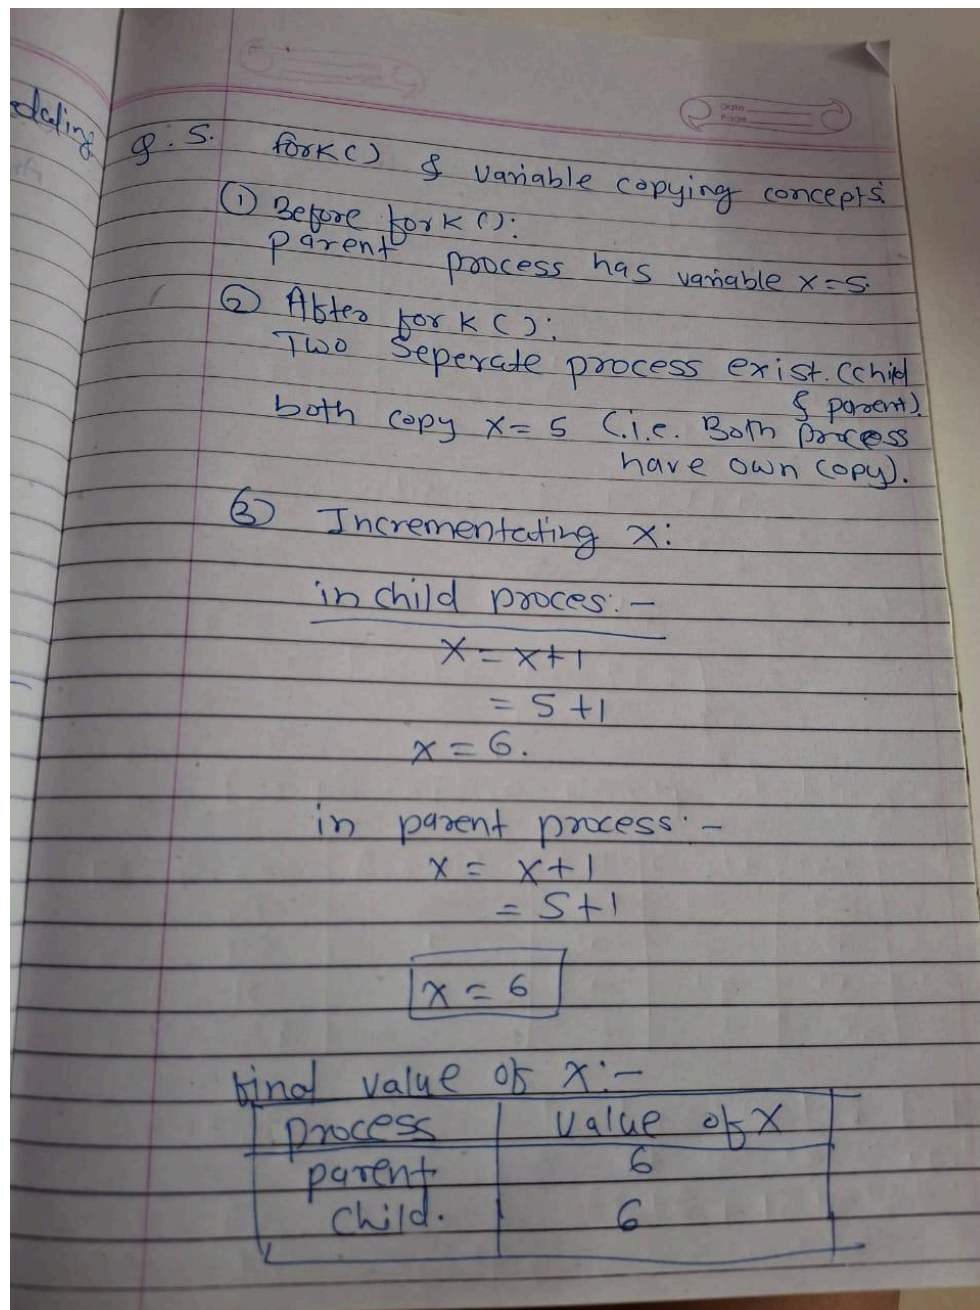 dating
Date
Page
Q.5. fork() & variable copying concepts.
① Before fork():
parent process has variable x=5.
② After fork():
Two Seperate process exist. (child
& parent).
both copy x=5 (i.e. Both process
have own copy).
③ Incrementating x:
in child proces:-
x = x+1
= 5+1
x = 6.
in parent process:-
x = x+1
= 5+1
x = 6
final value of x:-
process value of x
parent 6
child. 6